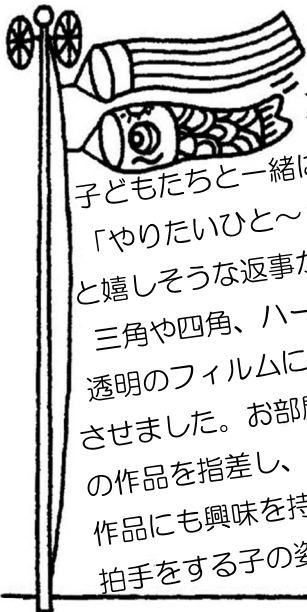 子どもたちと一緒に
「やりたいひと～
と嬉しそうな返事が
三角や四角、ハー
透明のフィルムに
させました。お部屋
の作品を指差し、
作品にも興味を持
拍手をする子の姿